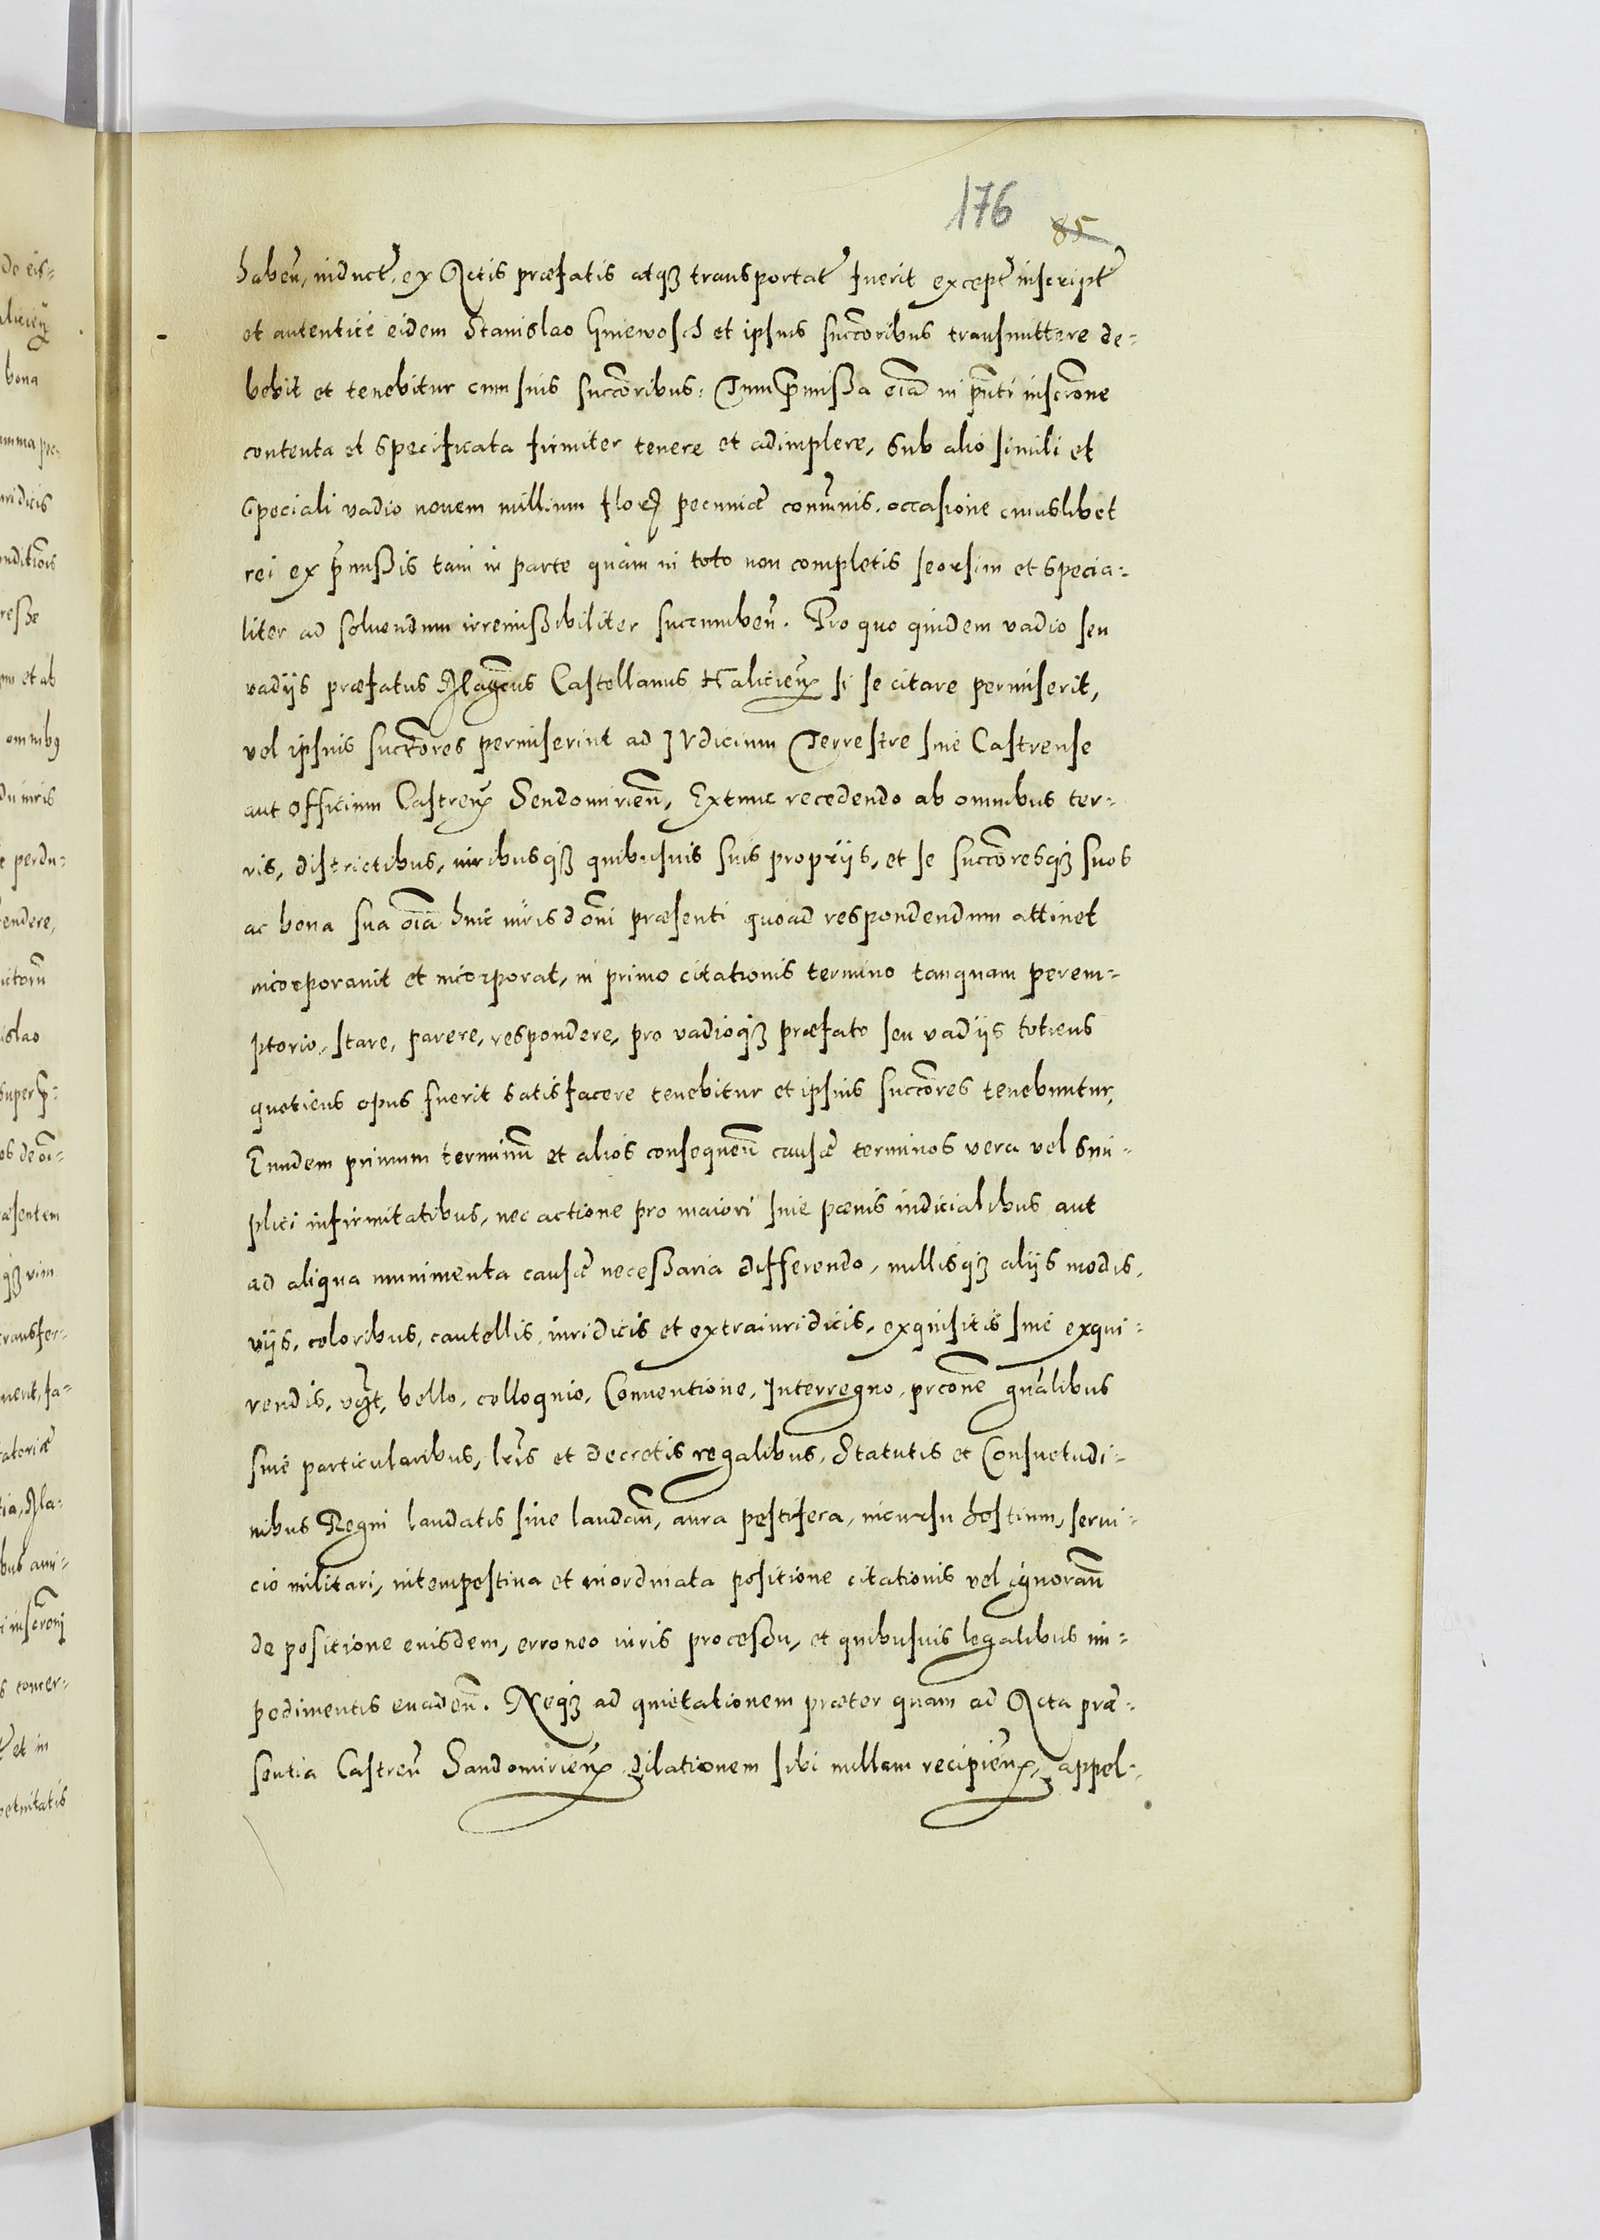 176 85
habeñ, induct, ex Actis præfatis atqȝ transportat fuerit except inscript
et autentice eidem Stanislao Gniewosch et ipsius succoribus transmittere de-
bebit et tenebitur cum suis succoribus. Tum pmißa oia in pnti inscrone
contenta et specificata firmiter tenere et adimplere, Sub alio simili et
Speciali vadio novem millium flor pecuniæ comunis. occasione cuiuslibet
rei ex pmißis tam in parte quàm in toto non completis seorsim et specia-
liter ad soluendum irremißibiliter succumbeñ. Pro quo quidem vadio seu
vadijs præfatus Magcus Castellanus Halicieñ si se citare permiserit,
vel ipsius succores permiserint ad Iudicium Terrestre siue Castrense
aut officium Castreñ Sendomirieñ, Extunc recedendo ab omnibus ter-
ris, districtibus, iuribusqȝ quibusuis suis proprijs, et se succoresqȝ suos
ac bona sua oia huic iurisdoni præsenti quoad respondendum attinet
incorporauit et incorporat, in primo citationis termino tanquam perem-
ptorio, stare, parere, respondere, pro vadioqȝ præfato seu vadijs totiens
quotiens opus fuerit satisfacere tenebitur et ipsius succores tenebuntur,
Eundem primum terminum et alios consequeñ causæ terminos vera vel sim-
plici infirmitatibus, nec actione pro maiori siue pœnis iudicialibus aut
ad aliqua munimenta causæ neceßaria differendo, nullisqȝ alijs modis,
vijs, coloribus, cautellis, iuridicis et extraiuridicis, exquisitis siue exqui-
rendis, vgt, bello, colloquio, Conuentione, Interregno, prcone gnalibus
siue particularibus, lris et decretis regalibus, Statutis et Consuetudi-
nibus Regni laudatis siue laudañ, aura pestifera, incursu hostium, serui-
cio militari, intempestiua et inordinata positione citationis vel ignorañ
de positione eiusdem, erroneo iuris proceßu, et quibusuis legalibus im-
pedimentis euadeñ. Neqȝ ad quietationem præter quam ad Acta præ-
sentia Castreñ Sandomirieñ dilationem sibi nullam recipieñ, appel-